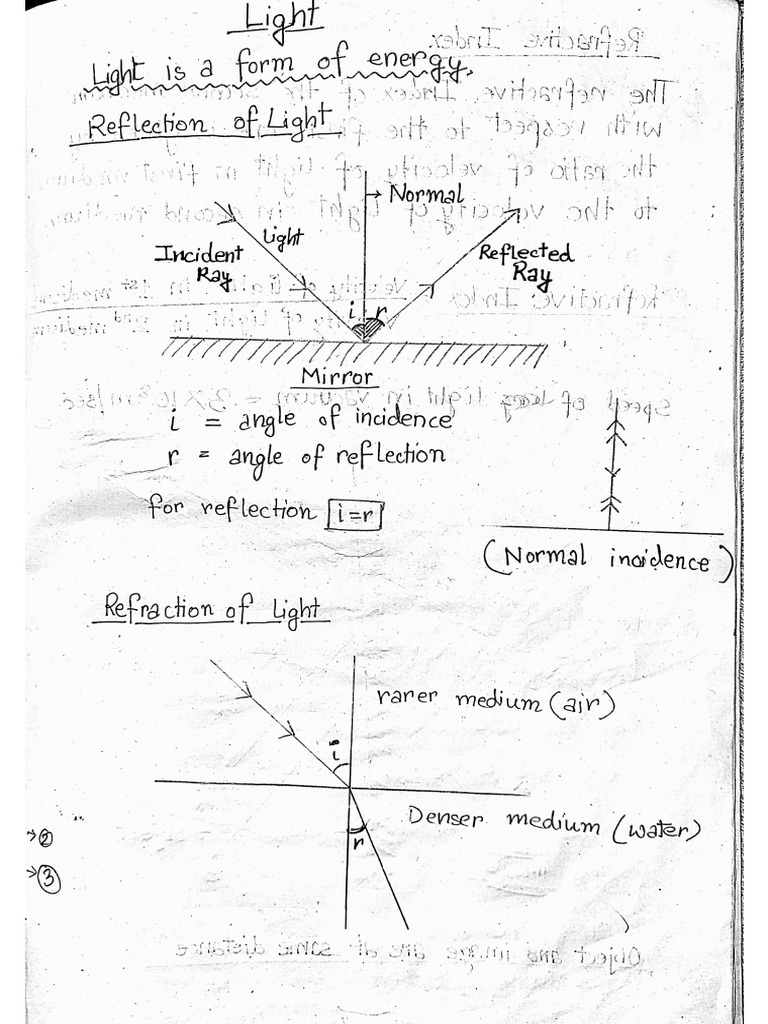 Light
Light is a form of energy.
Reflection of Light
→ Normal
Light
Incident
Ray
Reflected
Ray
i r
Mirror
i = angle of incidence
r = angle of reflection
for reflection i=r
(Normal incidence)
Refraction of Light
rarer medium (air)
i
Denser medium (water)
r
→②
→③